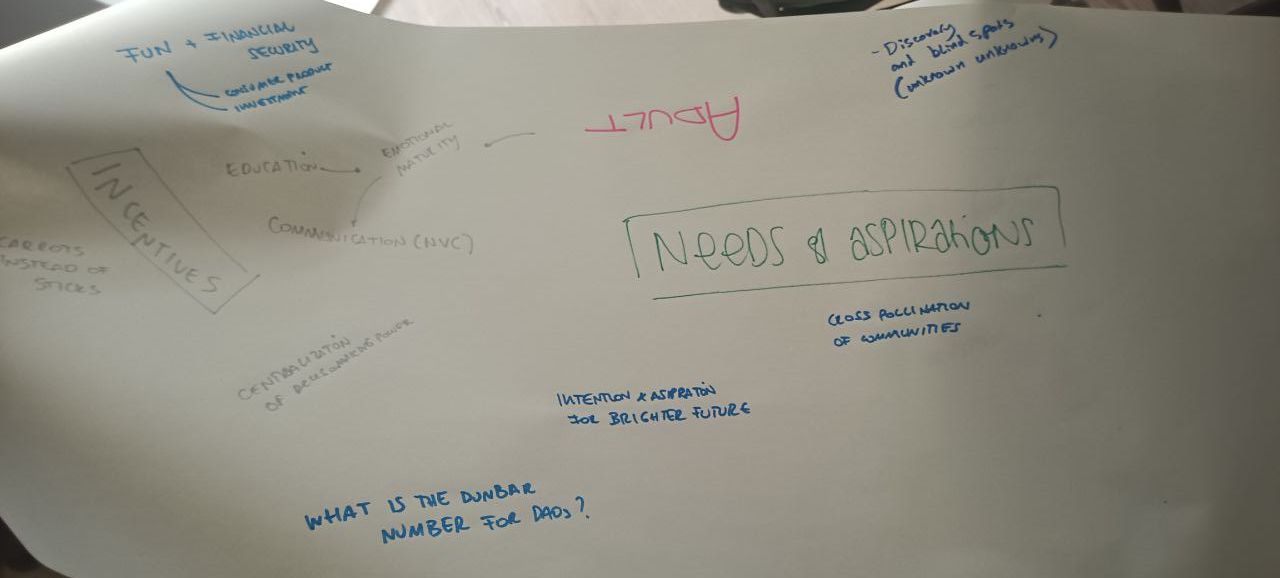 FUN + FINANCIAL
SECURITY
CONSUMER PRODUCT
INVESTMENT
- Discovery
and blind spots
(unknown unknowns)
ADULT
EMOTIONAL
MATURITY
EDUCATION
COMMUNICATION (NVC)
INCENTIVES
CARROTS
INSTEAD OF
STICKS
NEEDS & ASPIRATIONS
CROSS POLLINATION
OF COMMUNITIES
CENTRALIZATION
OF DECISIONMAKING POWER
INTENTION & ASPIRATION
FOR BRIGHTER FUTURE
WHAT IS THE DUNBAR
NUMBER FOR DAOs?